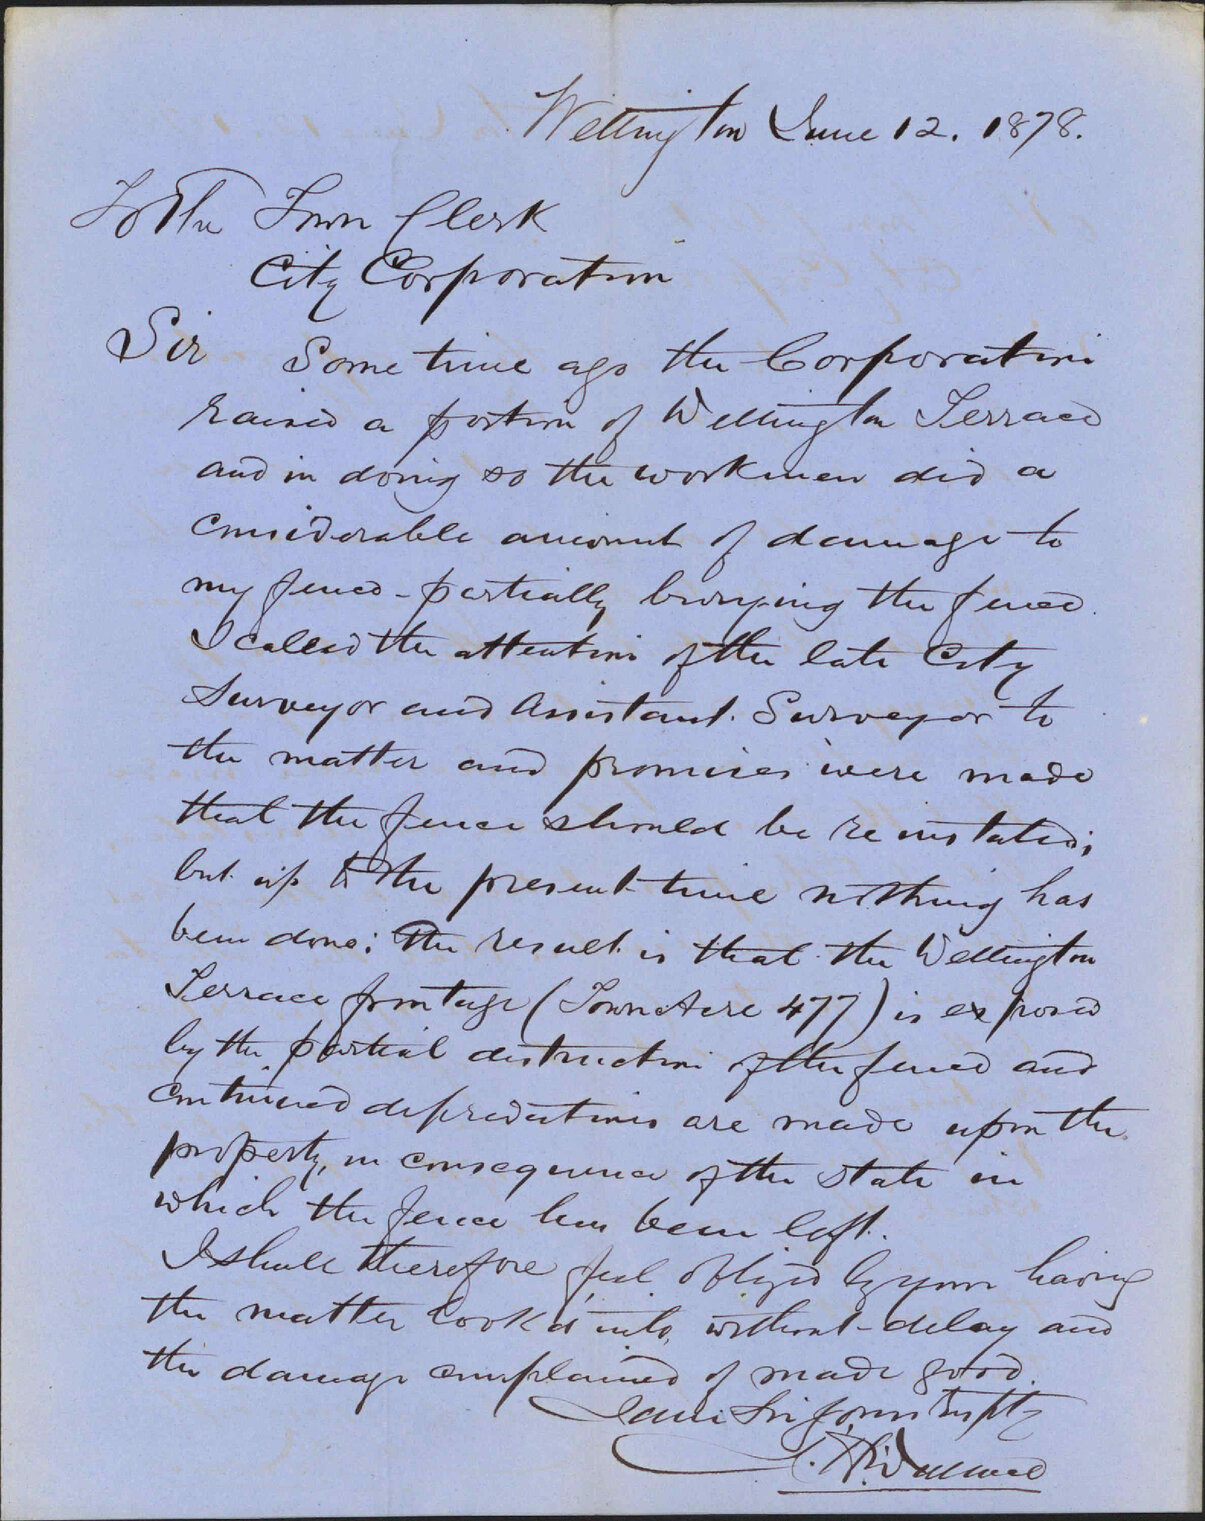 Wellington June 12. 1878.
To The Town Clerk
City Corporation
Sir Some time ago the Corporation
raised a portion of Wellington Terrace
and in doing so the workmen did a
considerable amount of damage to
my fence - partially burying the fence.
I called the attention of the late City
Surveyor and Assistant Surveyor to
the matter and promises were made
that the fence should be re instated;
but up to the present time nothing has
been done: The result is that the Wellington
Terrace frontage (Town Acre 477) is exposed
by the partial destruction of the fence and
continued depredations are made upon the
property, in consequence of the state in
which the fence has been left.
I shall therefore feel obliged by your having
the matter look'd into, without delay and
the damage complained of made good.
I am Sir yours trusftly